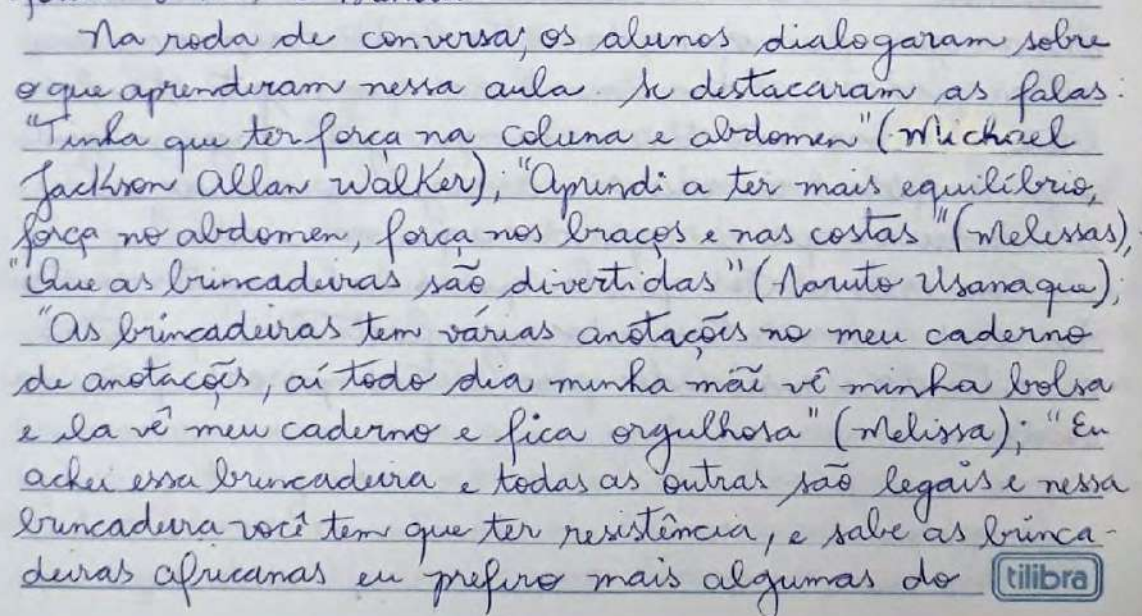 Na roda de conversa, os alunos dialogaram sobre
o que aprenderam nessa aula. Se destacaram as falas:
"Tinha que ter força na coluna e abdomen" (Michael
Jackson Allan Walker); "Aprendi a ter mais equilíbrio,
força no abdomen, força nos braços e nas costas" (Melissas);
"Que as brincadeiras são divertidas" (Naruto Usanaque);
"As brincadeiras tem várias anotações no meu caderno
de anotações, aí todo dia minha mãe vê minha bolsa
e ela vê meu caderno e fica orgulhosa" (Melissa); "Eu
achei essa brincadeira e todas as outras são legais e nessa
brincadeira você tem que ter resistência, e sabe as brinca-
deiras africanas eu prefiro mais algumas do
tilibra